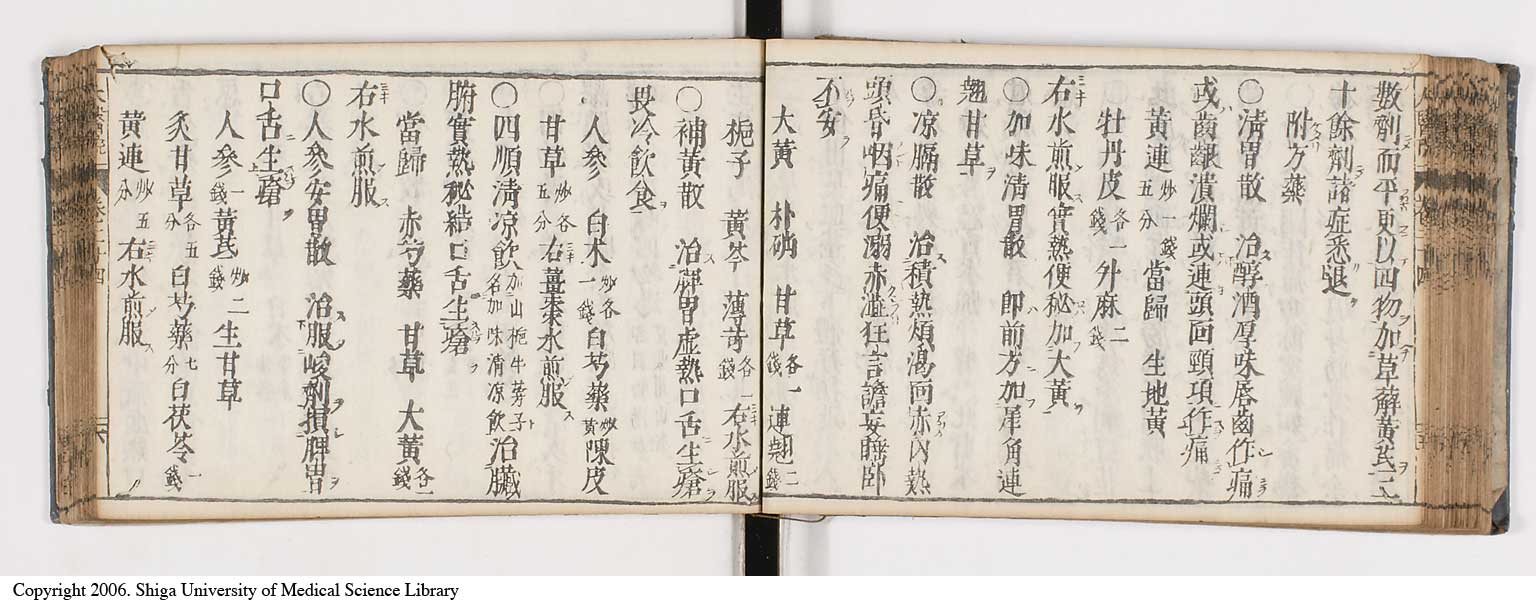 數劑而平更以四物加草薢黃芪二
十餘劑諸症悉退
附方藥
○淸胃散 治醇酒厚味唇齒作痛
或齒齦潰爛或連頭面頸項作痛
黃連炒一錢五分 當歸 生地黃
牡丹皮各一錢 外麻二錢
右水煎服實熱便秘加大黃
○加味淸胃散 卽前方加犀角連
翹甘草
○凉膈散 治積熱煩渴面赤內熱
頭昏咽痛便溺赤澁狂言譫妄睡卧
不安
大黃 朴硝 甘草各一錢 連翹二錢
梔子 黃芩 薄荷各一錢 右水煎服
○補黃散 治脾胃虛熱口舌生瘡
畏冷飲食
人參 白朮炒各一錢 白芍藥炒黃 陳皮
甘草炒各五分 右薑棗水煎服
○四順淸凉飲加山梔牛蒡子名加味清凉飲 治臟
腑實熱秘結口舌生瘡
當歸 赤芍藥 甘草 大黃各一錢
右水煎服
○人參安胃散 治服峻劑損脾胃
口舌生瘡
人參一錢 黃芪炒二錢 生甘草
炙甘草各五分 白芍藥七分 白茯苓一錢
黃連炒五分 右水煎服
Copyright 2006. Shiga University of Medical Science Library